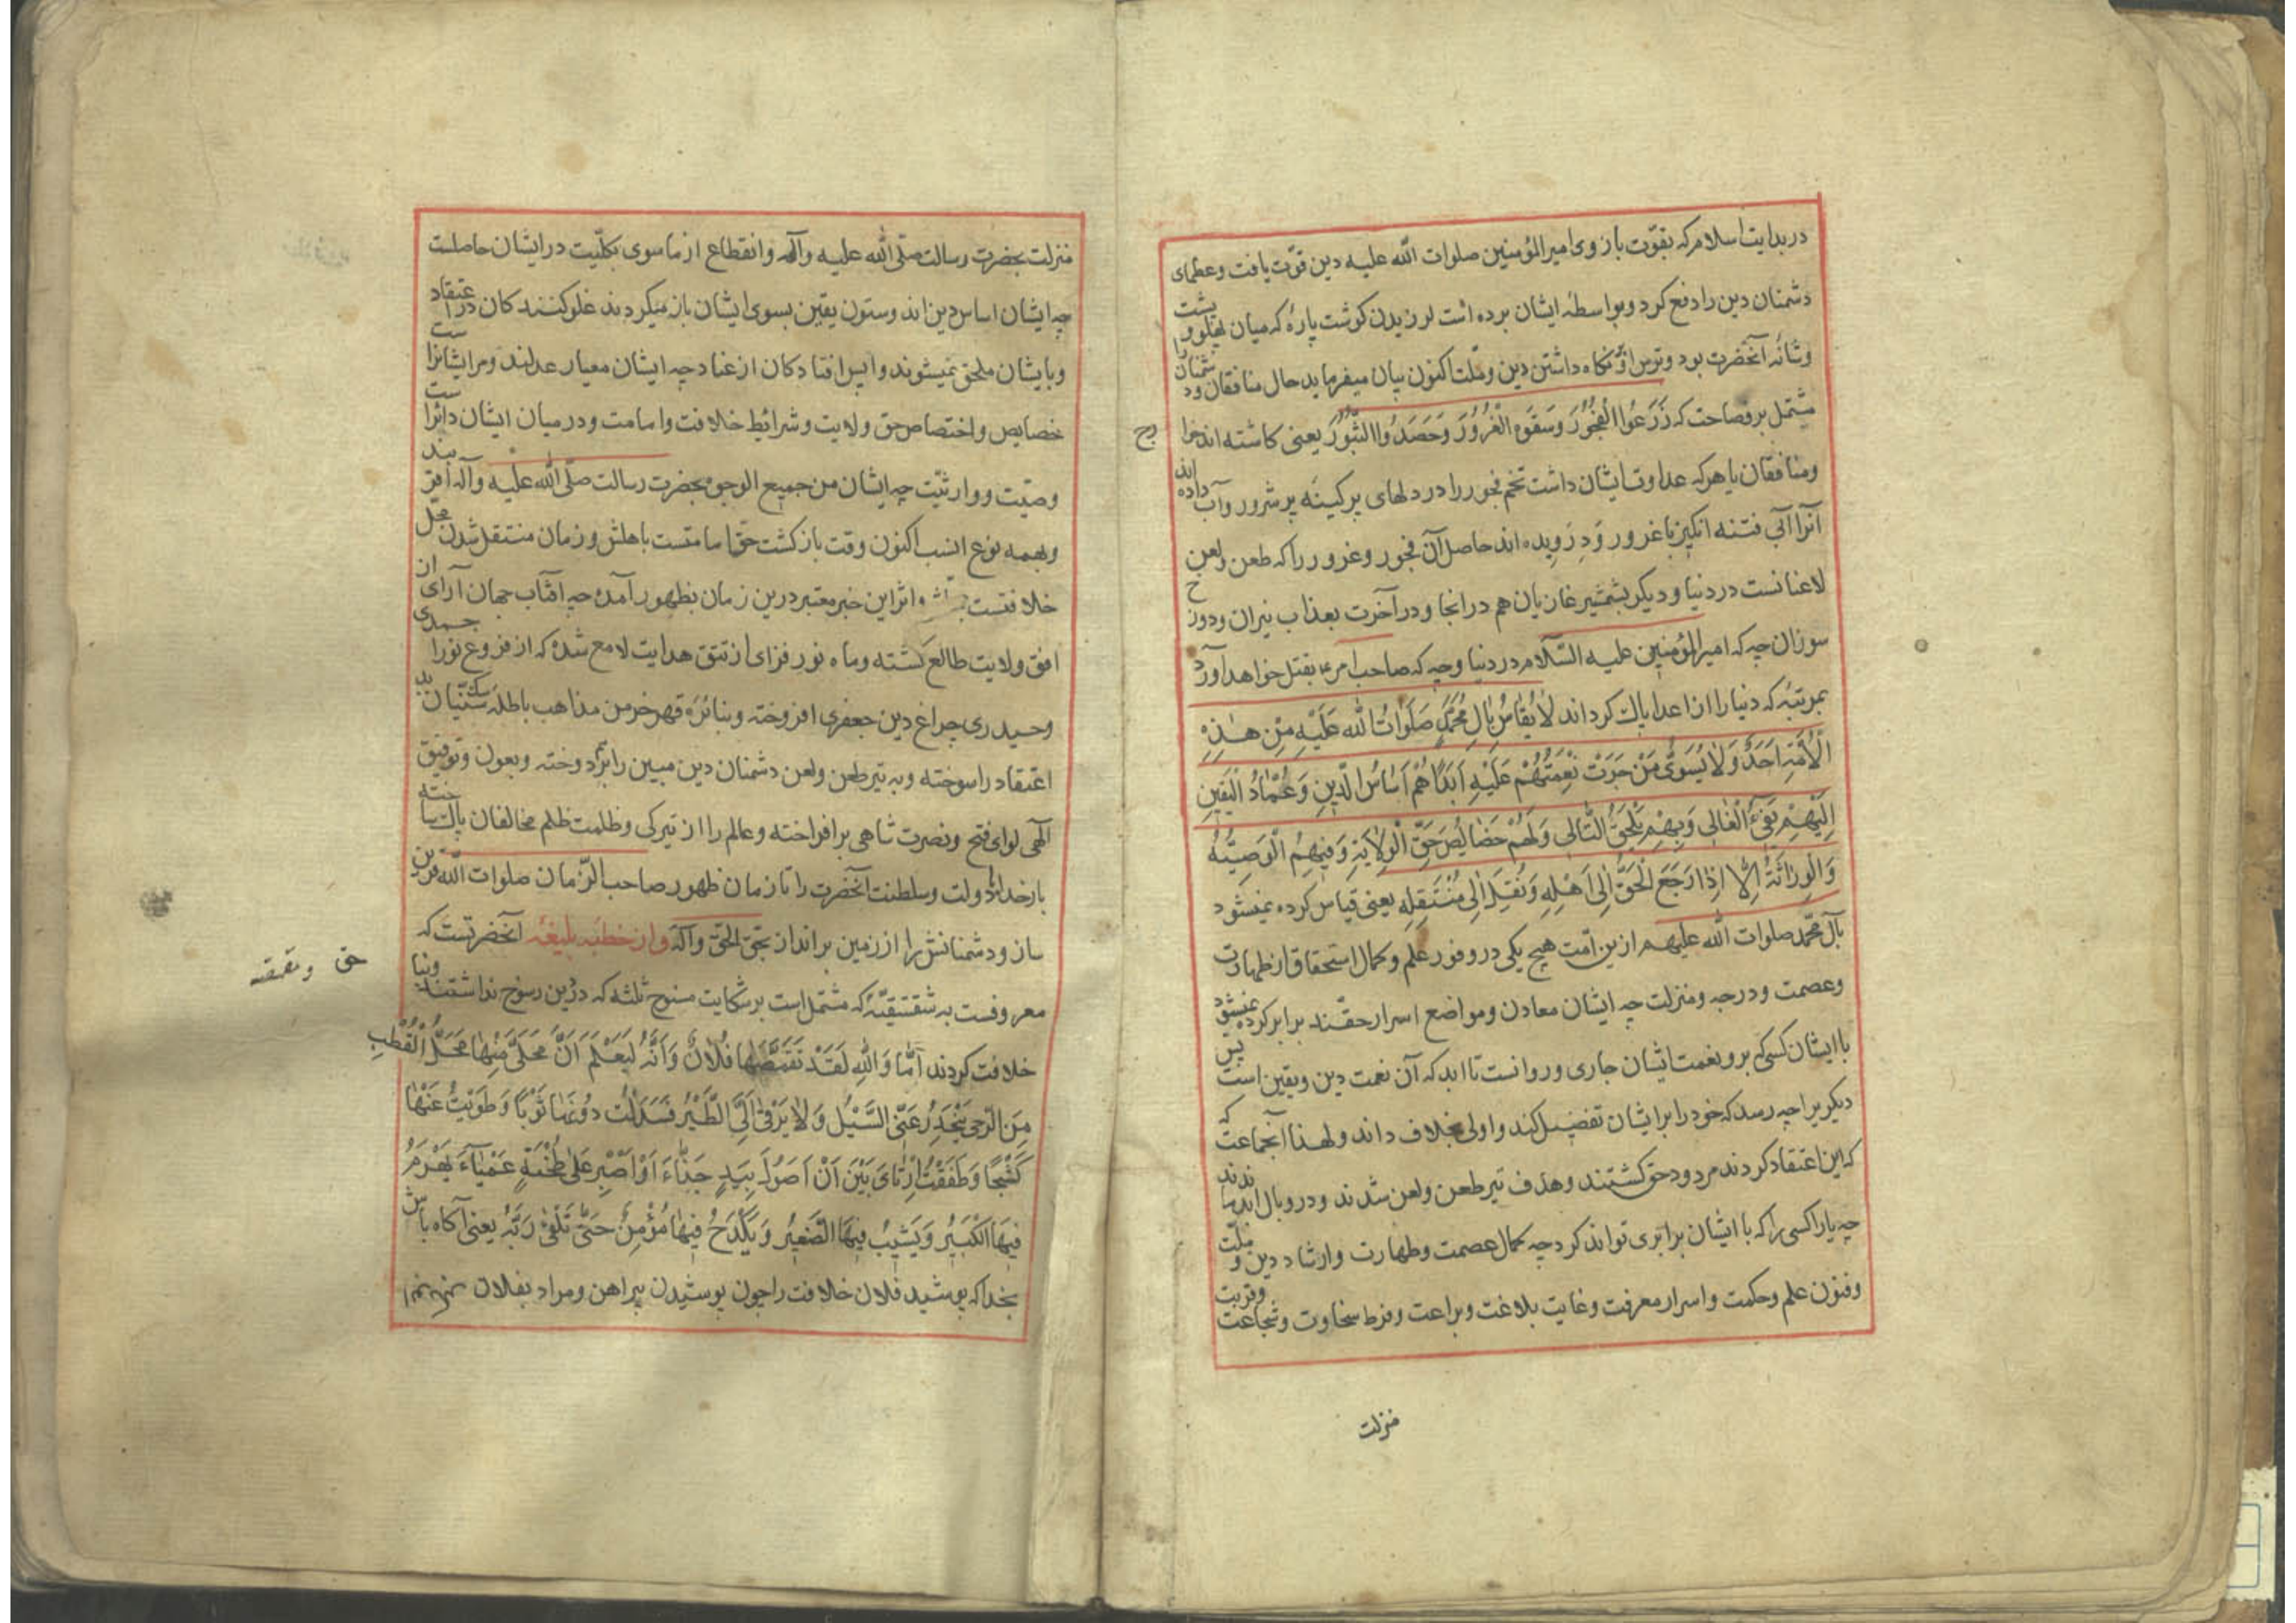 در بدایت اسلام که بقوّت بازوی امیرالمؤمنین صلوات الله علیه دین قوّت یافت وعظمای
دشمنان دین را دفع کرد وبواسطهٔ ایشان برده است لرزیدن کوشت پارهٔ که میان پهلو و پشت
وشانهٔ آنحضرت بود وترس از نکاه داشتن دین وملّت اکنون بیان میفرماید حال منافقان ودشمنان را
مشتمل بر فصاحت که زَرَعُوا الْفُجُورَ وَسَقَوْهُ الْغُرُورَ وَحَصَدُوا الثُّبُورَ یعنی کاشته اند
ومنافقان یا هر که عداوت ایشان داشت تخم فجور را در دلهای پر کینه پر شرور وآب داده اند
آنرا آبی فتنه انکیز با غرور وَدِرَویده اند حاصل آن فجور وغرور را که طعن ولعن
لاعنانست در دنیا ودیکر بشمشیر غازیان هم در انجا ودر آخرت بعذاب نیران ودوزخ
سوزان چه که امیرالمؤمنین علیه السّلام در دنیا وچه که صاحب امر بقتل خواهد آورد
بمرتبهٔ که دنیا را از اعدا پاک کرداند لَا یُقَاسُ بِآلِ مُحَمَّدٍ صَلَوَاتُ الله عَلَیْهِ مِنْ هٰذِهِ
الْاُمَّةِ اَحَدٌ وَلَا یُسَوّٰی مَنْ جَرَتْ نِعْمَتُهُمْ عَلَیْهِ اَبَدًا هُمْ اَسَاسُ الدِّینِ وَعِمَادُ الْیَقِینِ
اِلَیْهِمْ یَفِیءُ الْغَالِی وَبِهِمْ یَلْحَقُ التَّالِی وَلَهُمْ خَصَایِصُ حَقِّ الْوِلَایَةِ وَفِیهِمُ الْوَصِیَّةُ
وَالْوِرَاثَةُ اَلْآنَ اِذَا رَجَعَ الْحَقُّ اِلٰی اَهْلِهِ وَنُقِلَ اِلٰی مُنْتَقَلِهِ یعنی قیاس کرده نمیشود
بآل محمّد صلوات الله علیهم از ین امّت هیچ یکی در وفور علم وکمال استحقاق از طهارت
وعصمت ودرجه ومنزلت چه ایشان معادن ومواضع اسرار حقّند برابر کرده نمیشود
با ایشان کسی که برو نعمت ایشان جاری وروانست تا ابد که آن نعمت دین ویقین است پس
دیکر یرا چه رسد که خود را بر ایشان تفضیل کند واولی بخلاف داند ولهذا آنجماعت که
که این اعتقاد کردند مردود حق کشتند وهدف تیر طعن ولعن شدند ودر وبال ابد ماندند
چه یارا کسی را که با ایشان برابری تواند کرد چه کمال عصمت وطهارت وارشاد دین و ملّت
وفنون علم وحکمت واسرار معرفت وغایت بلاغت وبراعت وفرط سخاوت وشجاعت وقربت
منزلت
منزلت بحضرت رسالت صلّی الله علیه وآله وانقطاع از ما سوی بکلّیت در ایشان حاصلست
چه ایشان اساس دین اند وستون یقین بسوی ایشان باز میکردند غلو کنندکان در اعتقاد
وبایشان ملحق میشوند واپس افتادکان از عناد چه ایشان معیار عدلند ومر ایشانرا ست
خصایص واختصاص حق ولایت وشرائط خلافت وامامت ودر میان ایشان دائرا ست
وصیّت ووارثیّت چه ایشان من جمیع الوجوه بحضرت رسالت صلّی الله علیه وآله اقربند
وبهمه نوع انسب اکنون وقت بازکشت حقّ امامتست باهلش وزمان منتقل شدن محل
خلافتست اثر این خبر معتبر درین زمان بظهور آمده چه افتاب جهان آرای از
افق ولایت طالع کشته وماه نور فزای از تتق هدایت لامع شده که از فروغ نور احمدی
وحیدری چراغ دین جعفری افروخته وبنائرهٔ قهر خرمن مذاهب باطلهٔ سنّیان بد
اعتقاد را سوخته وبه تیر طعن ولعن دشمنان دین مبین را بردوخته وبعون وتوفیق
الهی لوای فتح ونصرت شاهی بر افراخته وعالم را از تیرکی وظلمت ظلم مخالفان پاک ساخته
بار خدایا دولت وسلطنت آنحضرت را تا زمان ظهور صاحب الزّمان صلوات الله قرین
ساز ودشمنانش را از زمین برانداز بحقّ الحقّ وآله واز خطبه بلیغه آنحضرتست که
معروفست به شقشقیّه که مشتملست بر شکایت ثلثه که در دین رسوخ نداشتند وبنا
حق وتقمصه
خلافت کردند اَمَّا وَاللّٰهِ لَقَدْ تَقَمَّصَهَا فُلَانٌ وَاَنَّهُ لَیَعْلَمُ اَنَّ مَحَلِّیَ مِنْهَا مَحَلُّ الْقُطْبِ
مِنَ الرَّحیٰ یَنْحَدِرُ عَنِّی السَّیْلُ وَلَا یَرْقیٰ اِلَیَّ الطَّیْرُ فَسَدَلْتُ دُونَهَا ثَوْبًا وَطَوَیْتُ عَنْهَا
کَشْحًا وَطَفِقْتُ اَرْتَایُ بَیْنَ اَنْ اَصُولَ بِیَدٍ جَذَّاءَ اَوْ اَصْبِرَ عَلیٰ طُخْیَةٍ عَمْیَآءَ یَهْرَمُ
فِیهَا الْکَبِیرُ وَیَشِیبُ فِیهَا الصَّغِیرُ وَیَکْدَحُ فِیهَا مُؤْمِنٌ حَتّٰی یَلْقیٰ رَبَّهُ یعنی آکاه باش
بخدا که پوشید فلان خلافت را چون پوشیدن پیراهن ومراد بفلان